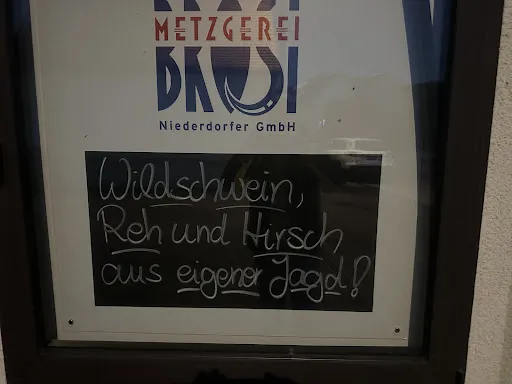 METZGEREI
BROSI
Niederdorfer GmbH
Wildschwein,
Reh und Hirsch
aus eigener Jagd!